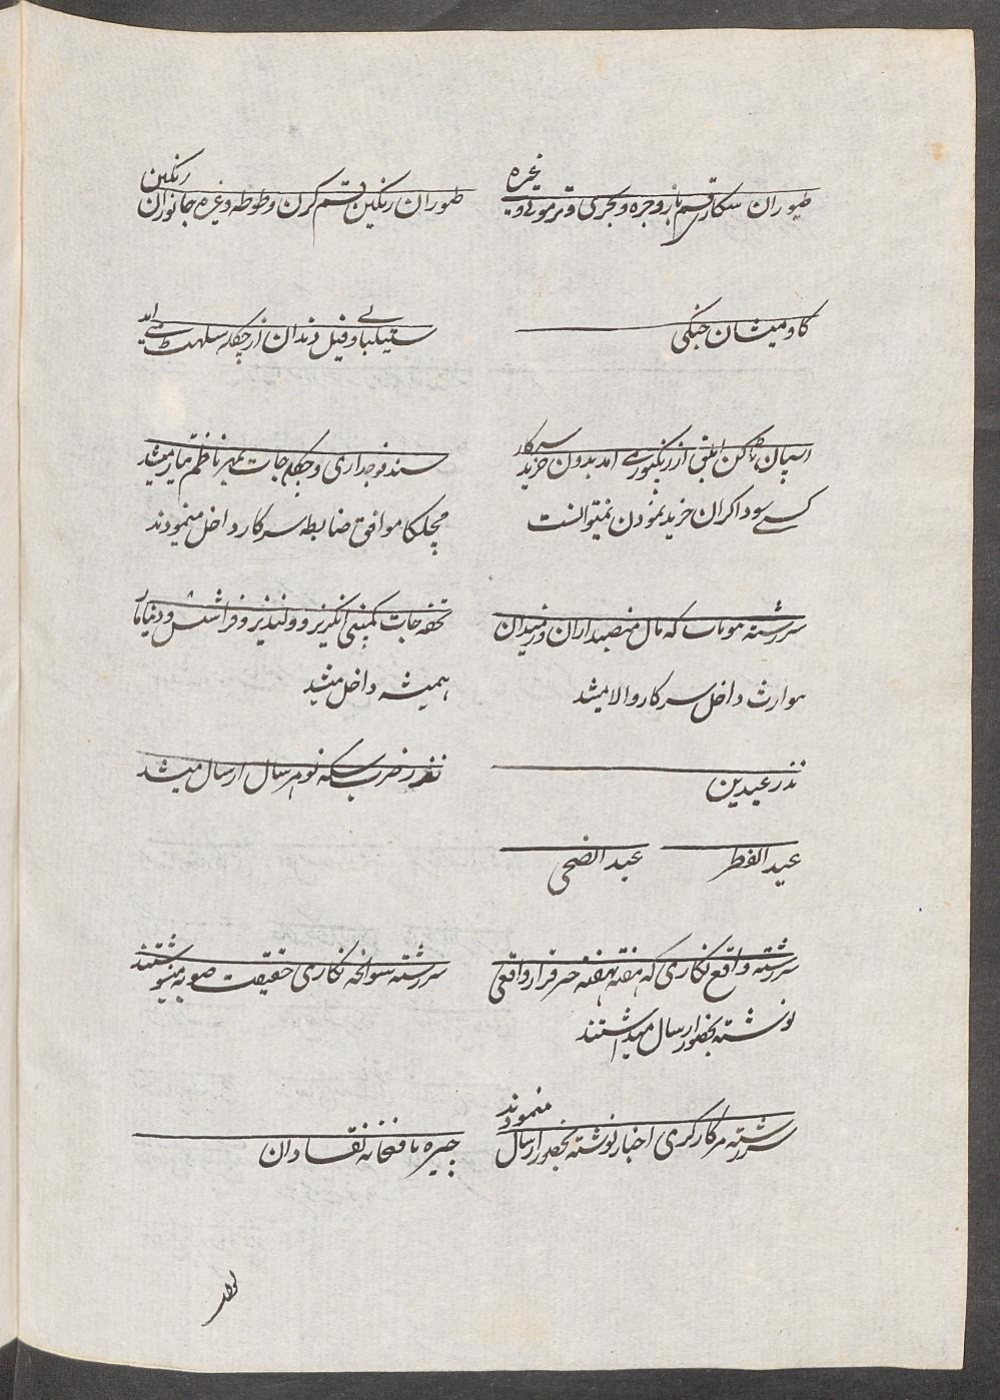 طیوران شکاری قسم باز و جره و بحری و ترمونی و غیره
طیوران رنکین قسم کرن و طوطه و غیره جانوران رنکین
کاومیشان جنکی
سیتلپا و فیل دندان از چکله سلهت می امد
اسپان تانکن ابلق از رنکپور می امد بدون خرید سرکار
کسی سوداکران خرید نمودن نمیتوانست
سند فوجداری و چکله جات بمهر ناظم تیار میشد
مچلکا موافق ضابطه سرکار داخل مینمودند
سررشته که مال منصبداران و زمیندان
داخل سرکار والا میشد
تحفه جات کمپنی انکریز و ولندیز و فراشیس و دنیامار
همیشه داخل میشد
نذر عیدین
نذر ضرب سکه نو هر سال ارسال میشد
عید الفطر
عید الضحی
سررشته واقع نکاری که هفته بهفته خبر قرار واقعی
نوشته بحضور ارسال میداشتند
سررشته سوانحه نکاری حقیقت صوبه مینوشتند
سررشته هرکارکری اخبار نوشته بحضور ارسال مینمودند
جیره بافخانه نقادان